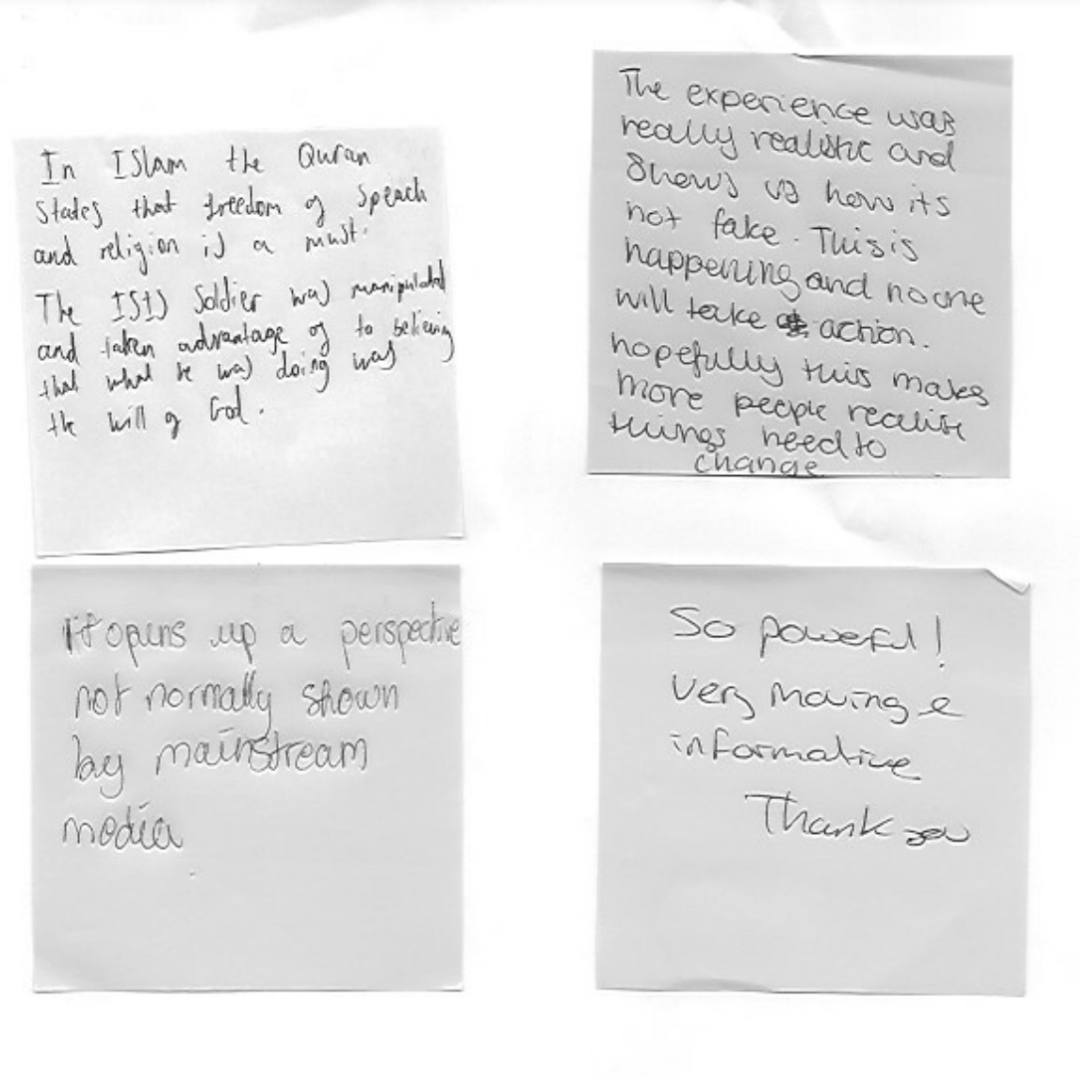 In ISlam the Quran
States that freedom of Speach
and religion is a must.
The ISIS Soldier was manipulated
and taken advantage of to believing
that what he was doing was
the will of God.
The experience was
really realistic and
Shows us how its
not fake. This is
happening and no one
will take action.
hopefully this makes
more people realise
things need to
change
It opens up a perspective
not normally shown
by mainstream
media.
So powerful!
Very moving &
informative
Thank you